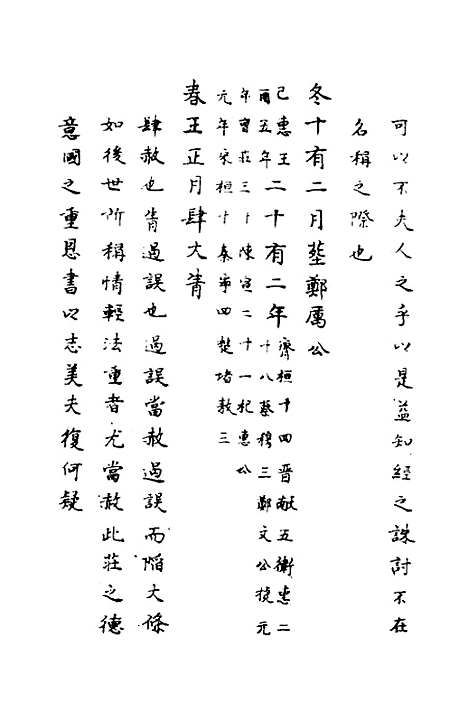 可以不夫人之乎以是益知經之誅討不在
名稱之際也
冬十有二月塟鄭厲公
己酉惠王五年二十有二年齊桓十四晋献五衛惠二十八蔡穆三鄭文公捷元
年曹莊三十陳宣二十一杞惠公
元年宋桓十秦宣四楚堵敖三
春王正月肆大眚
肆赦也眚過誤也過誤當赦過誤而陷大條
如後世所稱情輕法重者尤當赦此莊之德
意國之重恩書以志美夫復何疑